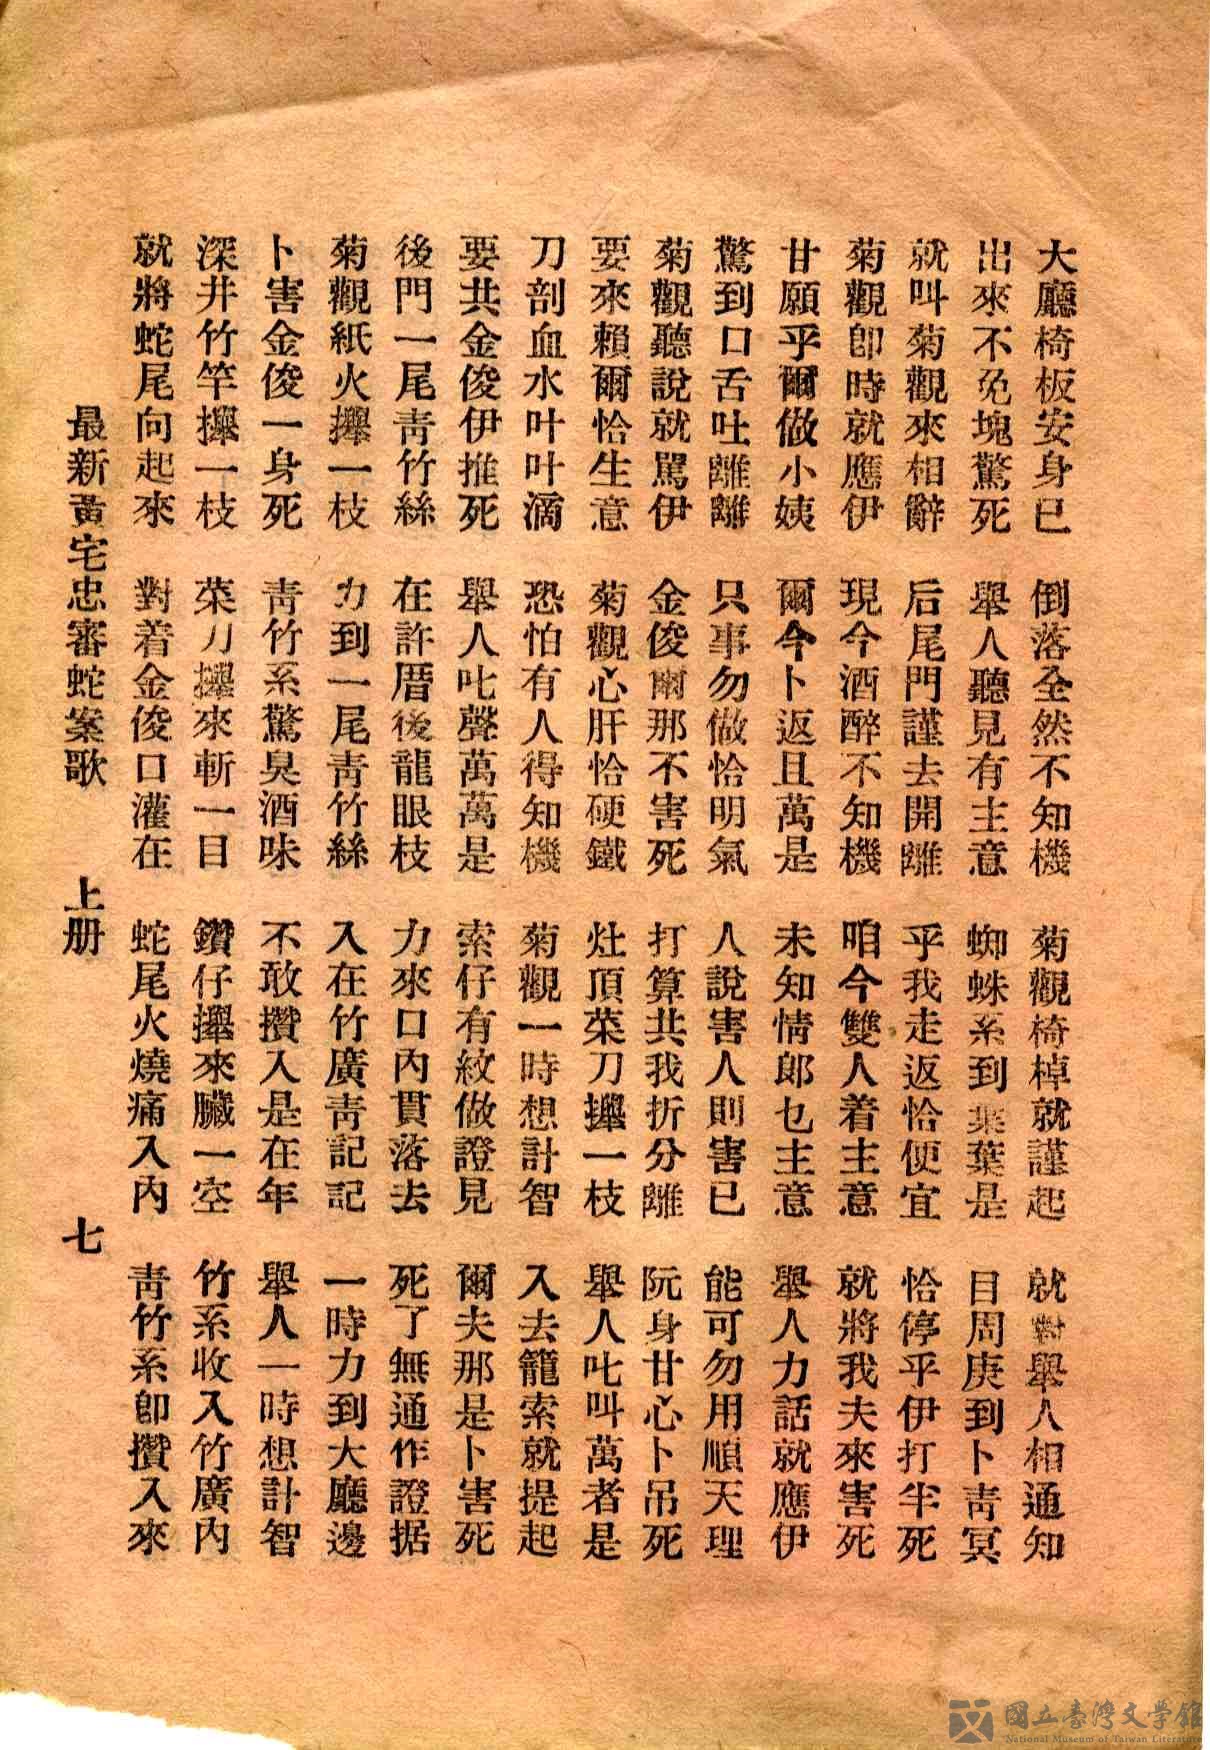 大廳椅板安身已 倒落全然不知機 菊觀椅棹就謹起 就對舉人相通知
出來不免塊驚死 舉人聽見有主意 蜘蛛系到葉葉是 目周庚到卜靑冥
就叫菊觀來相辭 后尾門謹去開離 乎我走返恰便宜 恰停乎伊打半死
菊觀卽時就應伊 現今酒醉不知機 咱今雙人着主意 就將我夫來害死
甘願乎爾做小姨 爾今卜返且萬是 未知情郎乜主意 舉人力話就應伊
驚到口舌吐離離 只事勿做恰明氣 人說害人則害已 能可勿用順天理
菊觀聽說就罵伊 金俊爾那不害死 打算共我折分離 阮身甘心卜吊死
要來賴爾恰生意 菊觀心肝恰硬鐵 灶頂菜刀攑一枝 舉人叱叫萬者是
刀剖血水叶叶滴 恐怕有人得知機 菊觀一時想計智 入去籠索就提起
要共金俊伊推死 舉人叱聲萬萬是 索仔有紋做證見 爾夫那是卜害死
後門一尾靑竹絲 在許厝後龍眼枝 力來口內貫落去 死了無通作證据
菊觀紙火攑一枝 力到一尾靑竹絲 入在竹廣靑記記 一時力到大廳邊
卜害金俊一身死 靑竹系驚臭酒味 不敢攢入是在年 舉人一時想計智
深井竹竿攑一枝 菜刀攑來斬一目 鑽仔攑來臟一空 竹系收入竹廣內
就將蛇尾向起來 對着金俊口灌在 蛇尾火燒痛入內 靑竹系卽攢入來
最新黃宅忠審蛇案歌 上册 七
國立臺灣文學館
National Museum of Taiwan Literature